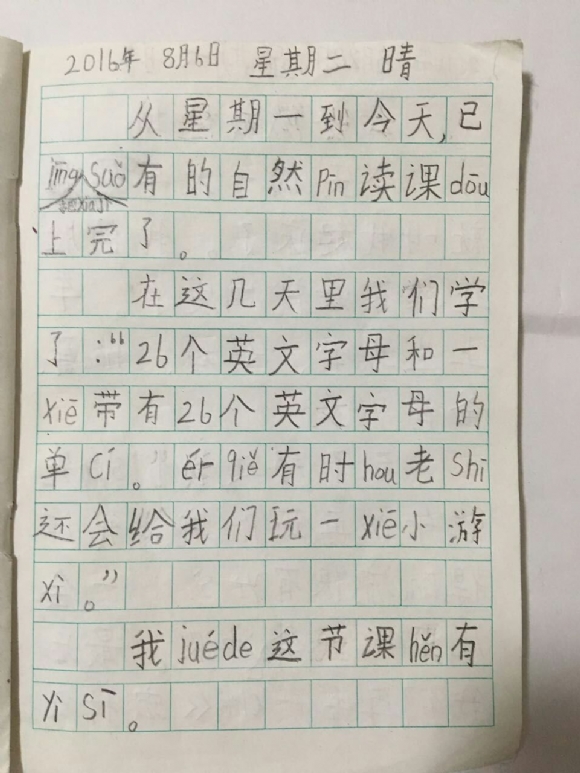 2016年 8月6日 星期二 晴
从星期一到今天,已
jīng suǒ有的自然pīn读课dōu
上完了。
在这几天里我们学
了:“26个英文字母和一
xiē带有26个英文字母的
单cí。”ér qiě有时hou老shī
还会给我们玩一xiē小游
xì。”
我juéde这节课hěn有
yì sī。